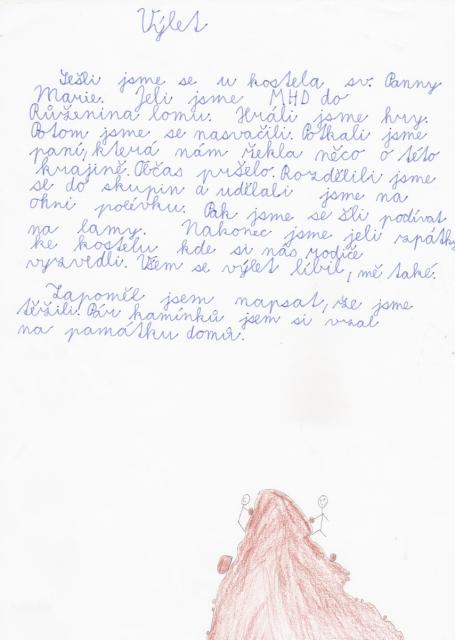 Výlet
Sešli jsme se u kostela sv. Panny
Marie. Jeli jsme MHD do
Růženina lomu. Hráli jsme hry.
Potom jsme se nasvačili. Potkali jsme
paní, která nám řekla něco o této
krajině. Občas pršelo. Rozdělili jsme
se do skupin a udělali jsme na
ohni polévku. Pak jsme se šli podívat
na lamy. Nakonec jsme jeli zpátky
ke kostelu kde si nás rodiče
vyzvedli. Všem se výlet líbil, mě také.
Zapoměl jsem napsat, že jsme
těžili. Pár kamínků jsem si vzal
na památku domů.